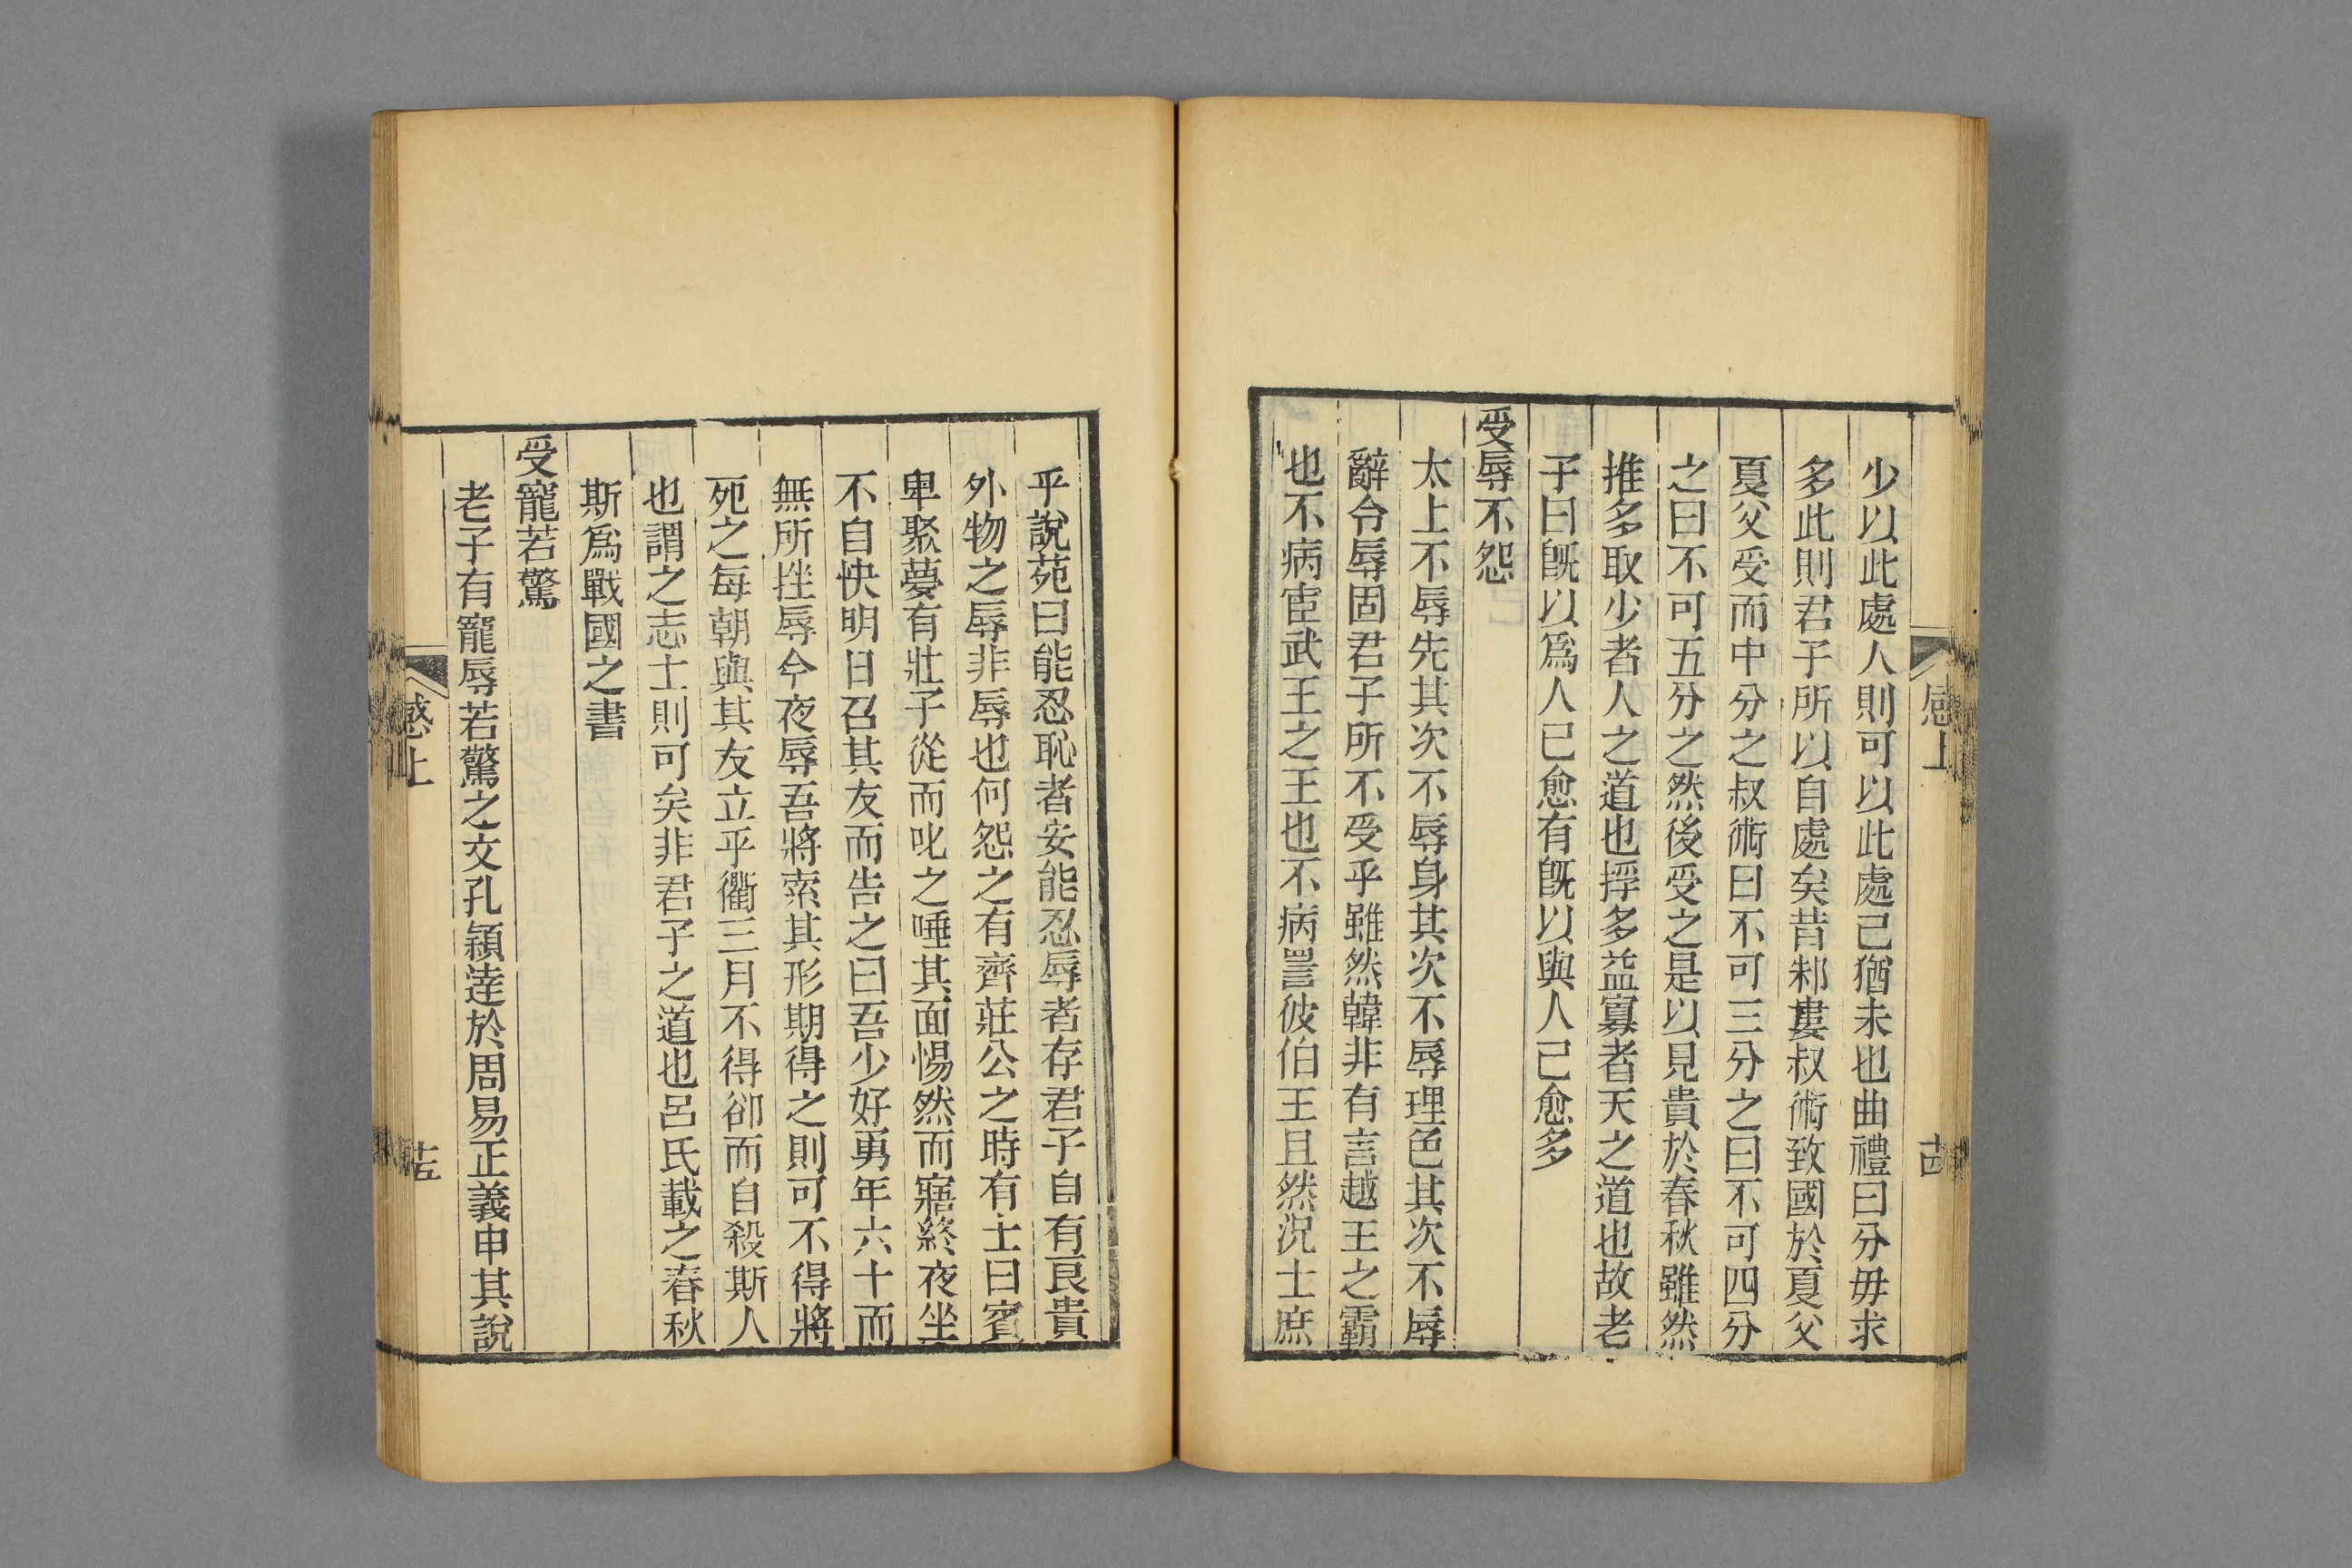 少以此處人則可以此處己猶未也曲禮曰分毋求
多此則君子所以自處矣昔邾婁叔術致國於夏父
夏父受而中分之叔術曰不可三分之曰不可四分
之曰不可五分之然後受之是以見貴於春秋雖然
推多取少者人之道也捊多益寡者天之道也故老
子曰旣以爲人已愈有旣以與人己愈多
受辱不怨
太上不辱先其次不辱身其次不辱理色其次不辱
辭令辱固君子所不受乎雖然韓非有言越王之霸
也不病宦武王之王也不病詈彼伯王且然況士庶
感上
乎說苑曰能忍恥者安能忍辱者存君子自有良貴
外物之辱非辱也何怨之有齊莊公之時有士曰賓
卑聚夢有壯子從而叱之唾其面惕然而寤終夜坐
不自快明日召其友而告之曰吾少好勇年六十而
無所挫辱今夜辱吾將索其形期得之則可不得將
死之每朝與其友立乎衢三月不得卻而自殺斯人
也謂之志士則可矣非君子之道也呂氏載之春秋
斯爲戰國之書
受寵若驚
老子有寵辱若驚之文孔穎逹於周易正義申其說
感上